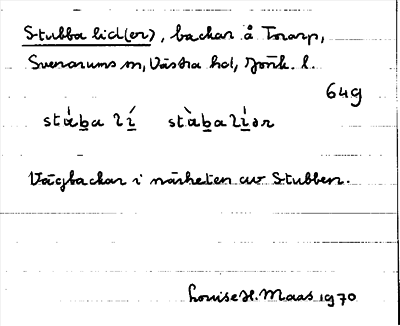 Stubba lid(er), backar å Torarp,
Svenarums sn, Västra hd, Jönk. l.
649
stába lí stàbalìər
Vägbackar i närheten av Stubben.
Louise H. Maas 1970